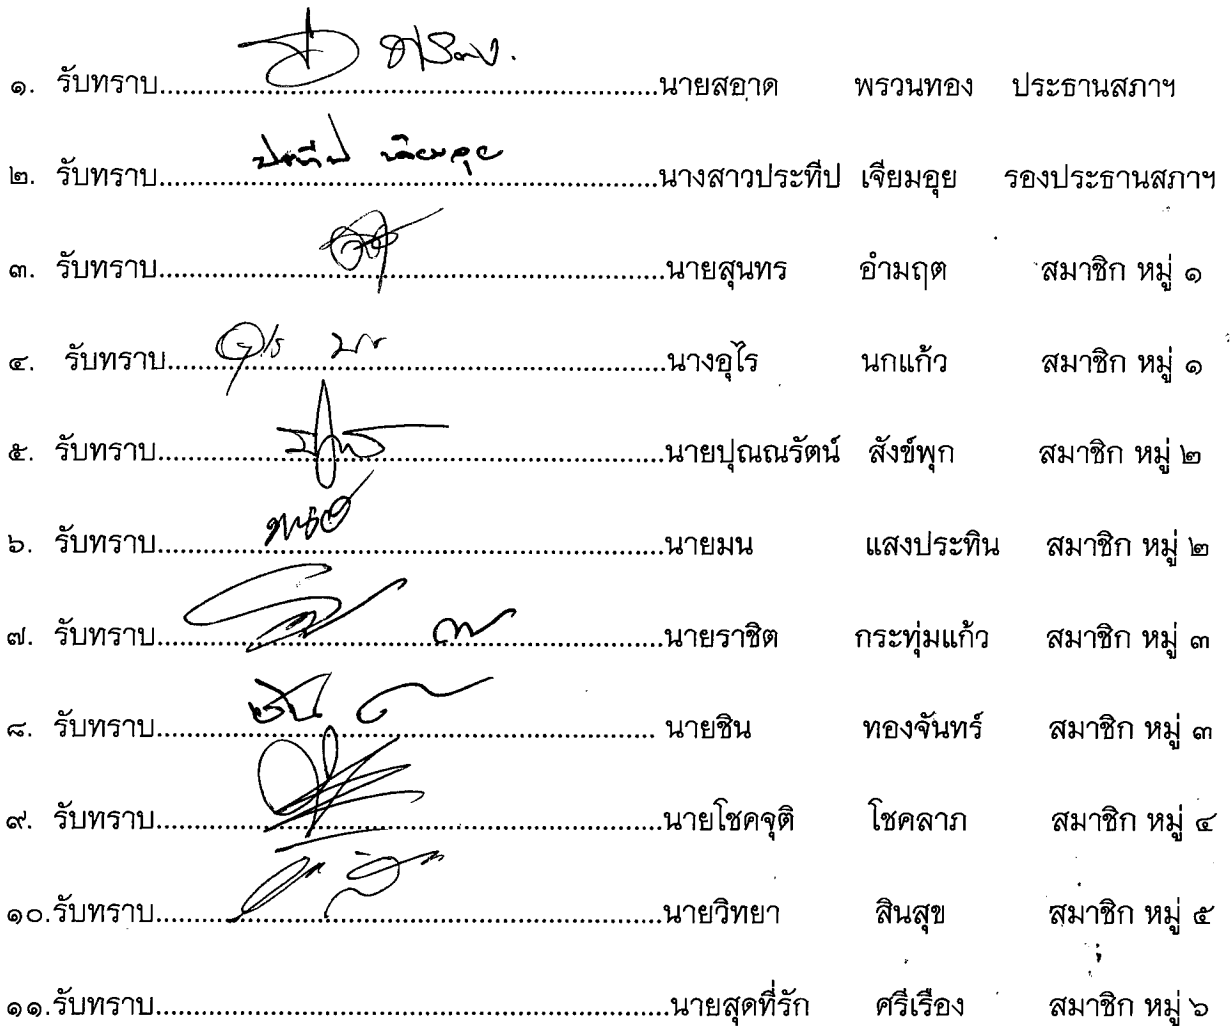 ๑. รับทราบ..............................................................นายสอาด พรวนทอง ประธานสภาฯ
๒. รับทราบ..............................................................นางสาวประทีป เจียมอุย รองประธานสภาฯ
๓. รับทราบ..............................................................นายสุนทร อำมฤต สมาชิก หมู่ ๑
๔. รับทราบ..............................................................นางอุไร นกแก้ว สมาชิก หมู่ ๑
๕. รับทราบ..............................................................นายปุณณรัตน์ สังข์พุก สมาชิก หมู่ ๒
๖. รับทราบ..............................................................นายมน แสงประทิน สมาชิก หมู่ ๒
๗. รับทราบ..............................................................นายราชิต กระทุ่มแก้ว สมาชิก หมู่ ๓
๘. รับทราบ.............................................................. นายชิน ทองจันทร์ สมาชิก หมู่ ๓
๙. รับทราบ..............................................................นายโชคจุติ โชคลาภ สมาชิก หมู่ ๔
๑๐.รับทราบ..............................................................นายวิทยา สินสุข สมาชิก หมู่ ๕
๑๑.รับทราบ..............................................................นายสุดที่รัก ศรีเรือง สมาชิก หมู่ ๖